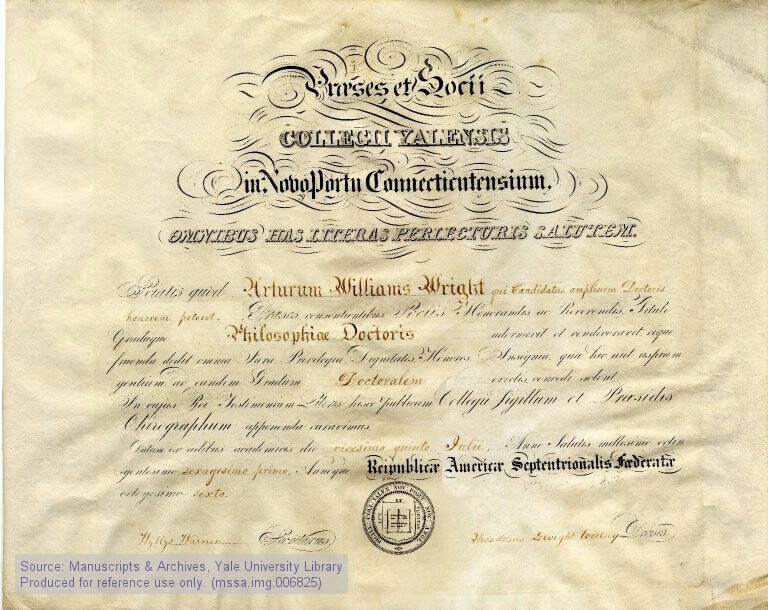 Præses et Socii
COLLEGII YALENSIS
in Novo Portu Connecticutensium,
OMNIBUS HAS LITERAS PERLECTURIS SALUTEM.
Sciatis quod Arturum Williams Wright qui Candidatus ampliorem Doctoris
honorem peteret, Præses, consentientibus Sociis Honorandis ac Reverendis, Titulo
Graduque Philosophiae Doctoris adornavit et condecoravit eique
fruenda dedit omnia Jura, Privilegia, Dignitates, Honores, Insignia, quæ hic aut uspiam
gentium, ac eundem Gradum Doctoralem evectis, concedi solent.
In cujus Rei Testimonium Literis hisce publicum Collegii Sigillum et Præsidis
Chirographum apponenda curavimus.
Datum ex ædibus academicis die vicesimo quinto Julii, Anno Salutis millesimo octin
gentesimo sexagesimo primo, Annoque Reipublicæ Americæ Septentrionalis Fœderatæ
octogesimo sexto.
Wyllys Warner
Theodorus Dwight Woolsey Præses
Source: Manuscripts & Archives, Yale University Library
Produced for reference use only. (mssa.img.006825)